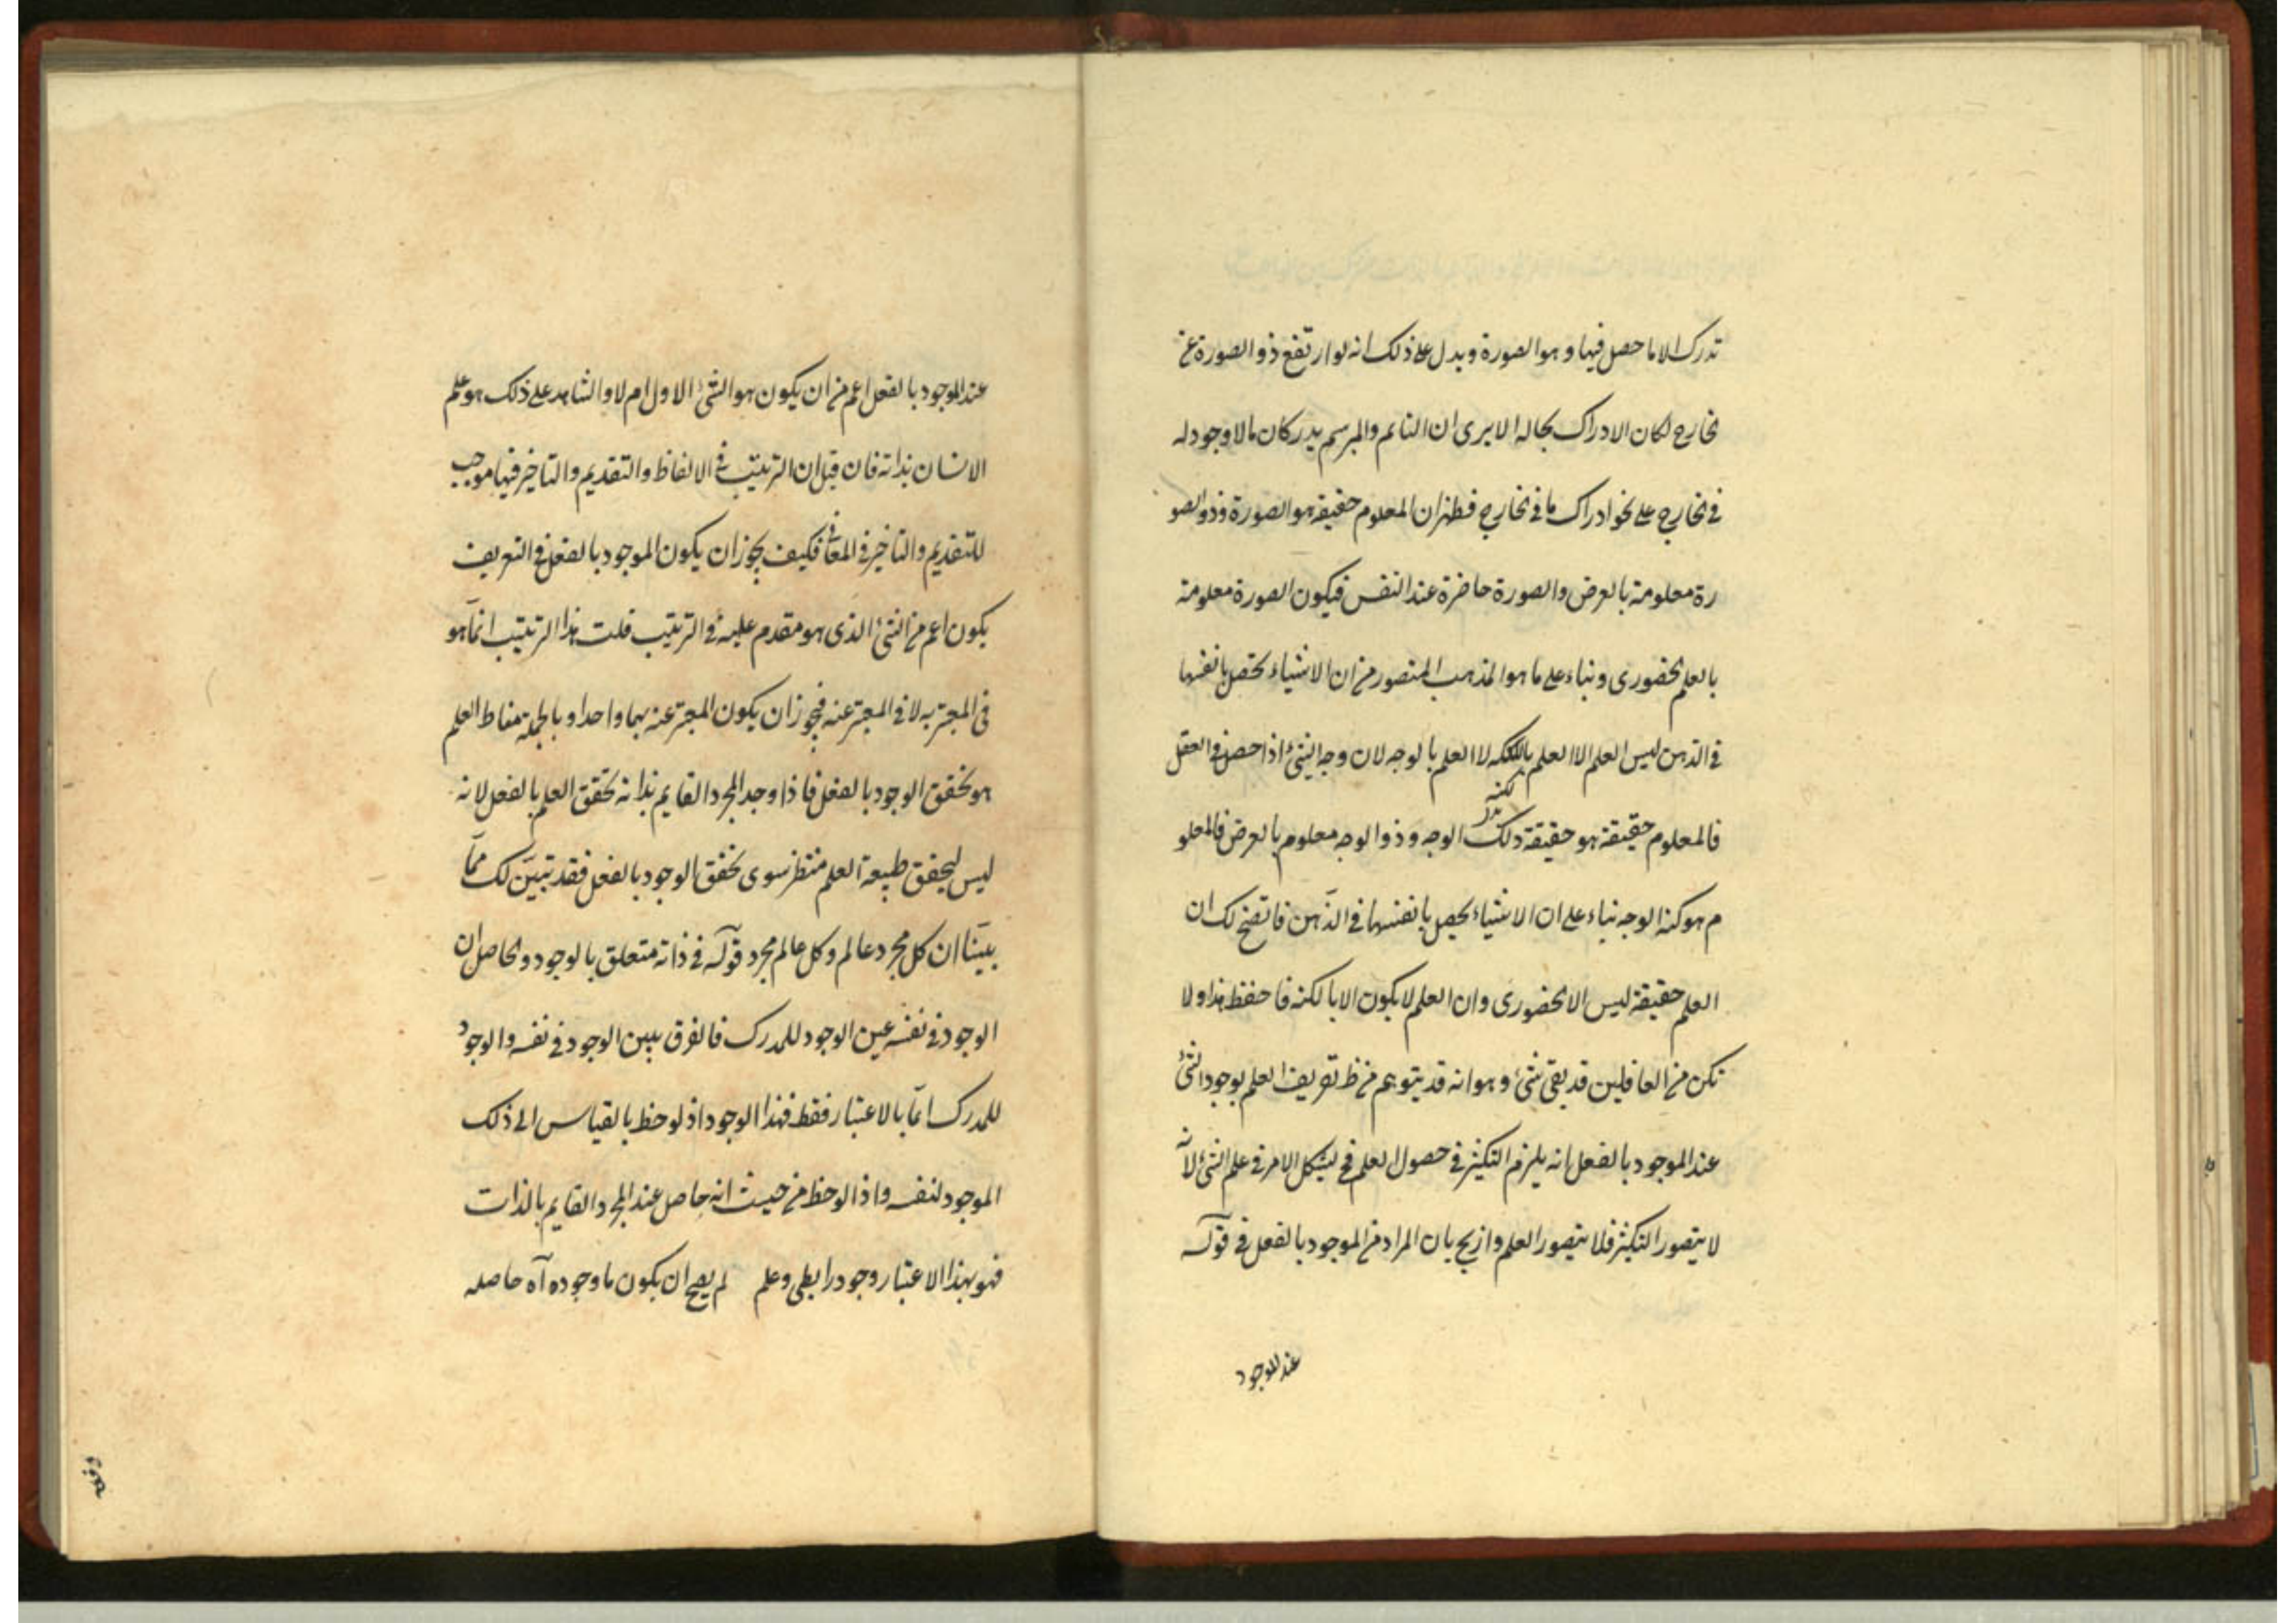 تدرك الا ما حصل فيها و هو الصورة ويدل على ذلك انه لو ارتفع ذو الصورة عن
الخارج لكان الادراك بحاله الا يرى ان النائم والمبرسم يدركان ما لا وجود له
فى الخارج على نحو ادراك ما فى الخارج فظهر ان المعلوم حقيقة هو الصورة وذو الصو
رة معلومة بالعرض والصورة حاضرة عند النفس فيكون الصورة معلومة
بالعلم الحضورى وبناء على ما هو المذهب المنصور من ان الاشياء تحصل بانفسها
فى الذهن ليس العلم الا العلم بالكنه لا العلم بالوجه لان وجه الشئ اذا حصل فى العقل
بكنه
فالمعلوم حقيقة هو حقيقة ذلك الوجه و ذو الوجه معلوم بالعرض فالمعلو
م هو كنه الوجه بناء على ان الاشياء يحصل بانفسها فى الذهن فاتضح لك ان
العلم حقيقة ليس الا الحضورى وان العلم لا يكون الا بالكنه فاحفظ هذا ولا
تكن من الغافلين قد بقى شئ و هو انه قد يتوهم من ظ تعريف العلم بوجود الشئ
عند الموجود بالفعل انه يلزم التكثر فى حصول العلم فح ليشكل الامر فى علم الشئ لانه
لا يتصور التكثر فلا يتصور العلم وازيح بان المراد من الموجود بالفعل فى قوله
عند الموجود
عند الموجود بالفعل اعم من ان يكون هو الشئ الاول ام لا والشاهد على ذلك هو علم
الانسان بذاته فان قيل ان الترتيب فى الالفاظ والتقديم والتاخير فيها موجب
للتقديم والتاخير فى المعانى فكيف يجوز ان يكون الموجود بالفعل فى التعريف
يكون اعم من الشئ الذى هو مقدم عليه فى الترتيب قلت هذا الترتيب انما هو
فى المعبر به لا فى المعبر عنه فيجوز ان يكون المعبر عنه بهما واحدا و بالجملة مناط العلم
هو تحقق الوجود بالفعل فاذا وجد المجرد القايم بذاته تحقق العلم بالفعل لانه
ليس لتحقق طبيعة العلم منتظر سوى تحقق الوجود بالفعل فقد تبين لك مما
بينا ان كل مجرد عالم و كل عالم مجرد قوله فى ذاته متعلق بالوجود و الحاصل ان
الوجود فى نفسه عين الوجود للمدرك فالفرق بين الوجود فى نفسه والوجود
للمدرك انما بالاعتبار فقط فهذا الوجود اذ لوحظ بالقياس الى ذلك
الموجود لنفسه و اذا لوحظ من حيث انه حاصل عند المجرد القايم بالذات
فهو بهذا الاعتبار وجود رابطى وعلم لم يصح ان يكون ما وجوده آه حاصله